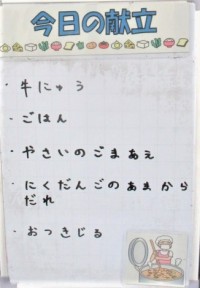 今日の献立
・牛にゅう
・ごはん
・やさいのごまあえ
・にくだんごのあまから
だれ
・おつきじる